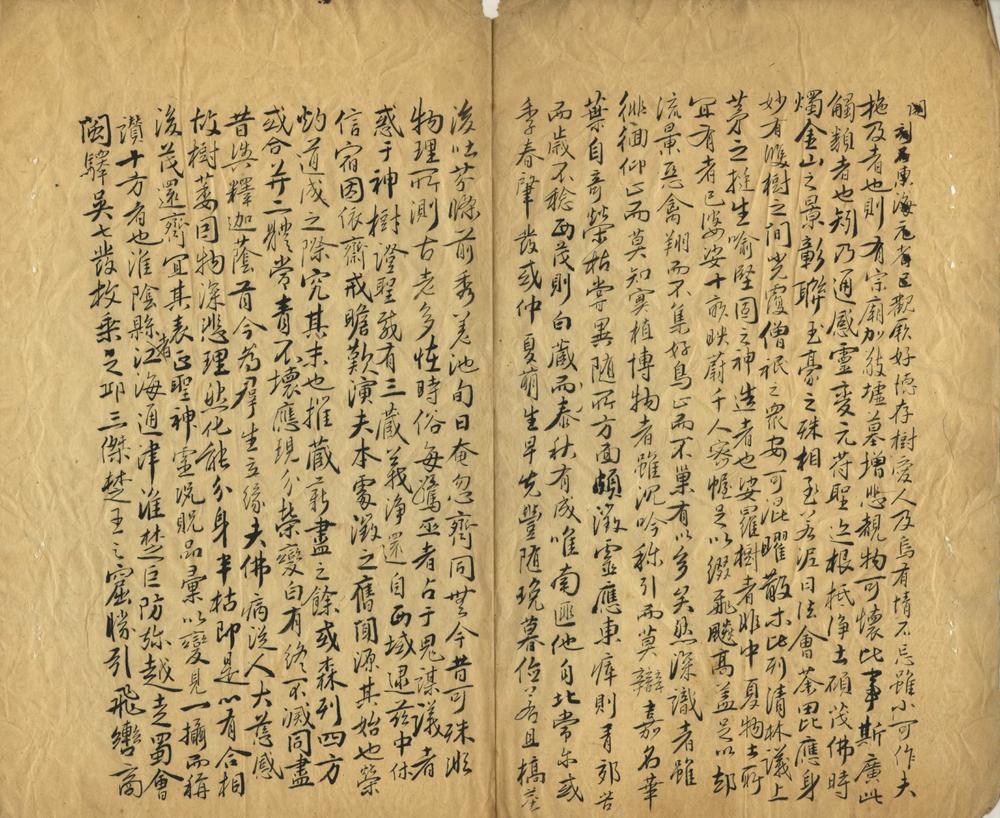 觀厥好德存樹愛人及烏有情不忘雖小可作夫
施及者也則有宗廟加敬墟墓增悲覩物可懷比事斯廣此
觸類者也矧乃通感靈變元符聖迹根柢淨土碩茂佛時
燭金山之景彰聯玉豪之殊相至若泥日法會荼毘應身
妙有雙樹之間光覆僧祇之眾安可混曜散木比列清林議上
茅之挺生喻堅固之神造者也娑羅樹者非中夏物土所
宜有者已婆娑十畝映蔚千人密幄足以綴飛飈高蓋足以却
流景惡禽翔而不集好鳥止而不巢有以多矣然深識者雖
徘徊仰止而莫知冥植博物者雖沉吟稱引而莫辯嘉名華
葉自奇榮枯嘗異隨所方面頗徵靈應東瘁則青郊苦
而歲不稔西茂則白藏而泰秋有成唯南匪他自北常尔或
季春肇發或仲夏萌生早先豐隨晚暮儉若且槁莖
後吐芬條前秀差池旬日奄忽齊同無今昔可殊順
物理所測古老多怪時俗每驚巫者占于鬼謀議者
惑于神樹證聖載有三藏義淨還自西域逮茲中休
信宿因依齋戒瞻歎演夫本處徵之舊聞源其始也榮
灼道成之際究其末也摧藏薪盡之餘或森列四方
或合并二體常青不壞應現分榮變白有終不滅同盡
昔與釋迦蔭首今為群生立緣夫佛病從人大慈感
故樹萎因物深悲理然化能分身半枯即是以有合相
後茂還齊宜其表正聖神靈況貺品彙以變見一攝而稱
讚十方者也淮陰縣者江海通津淮楚巨防弥越走蜀會
閩驛吳七發枚乘之邱三傑楚王之窟勝引飛轡商